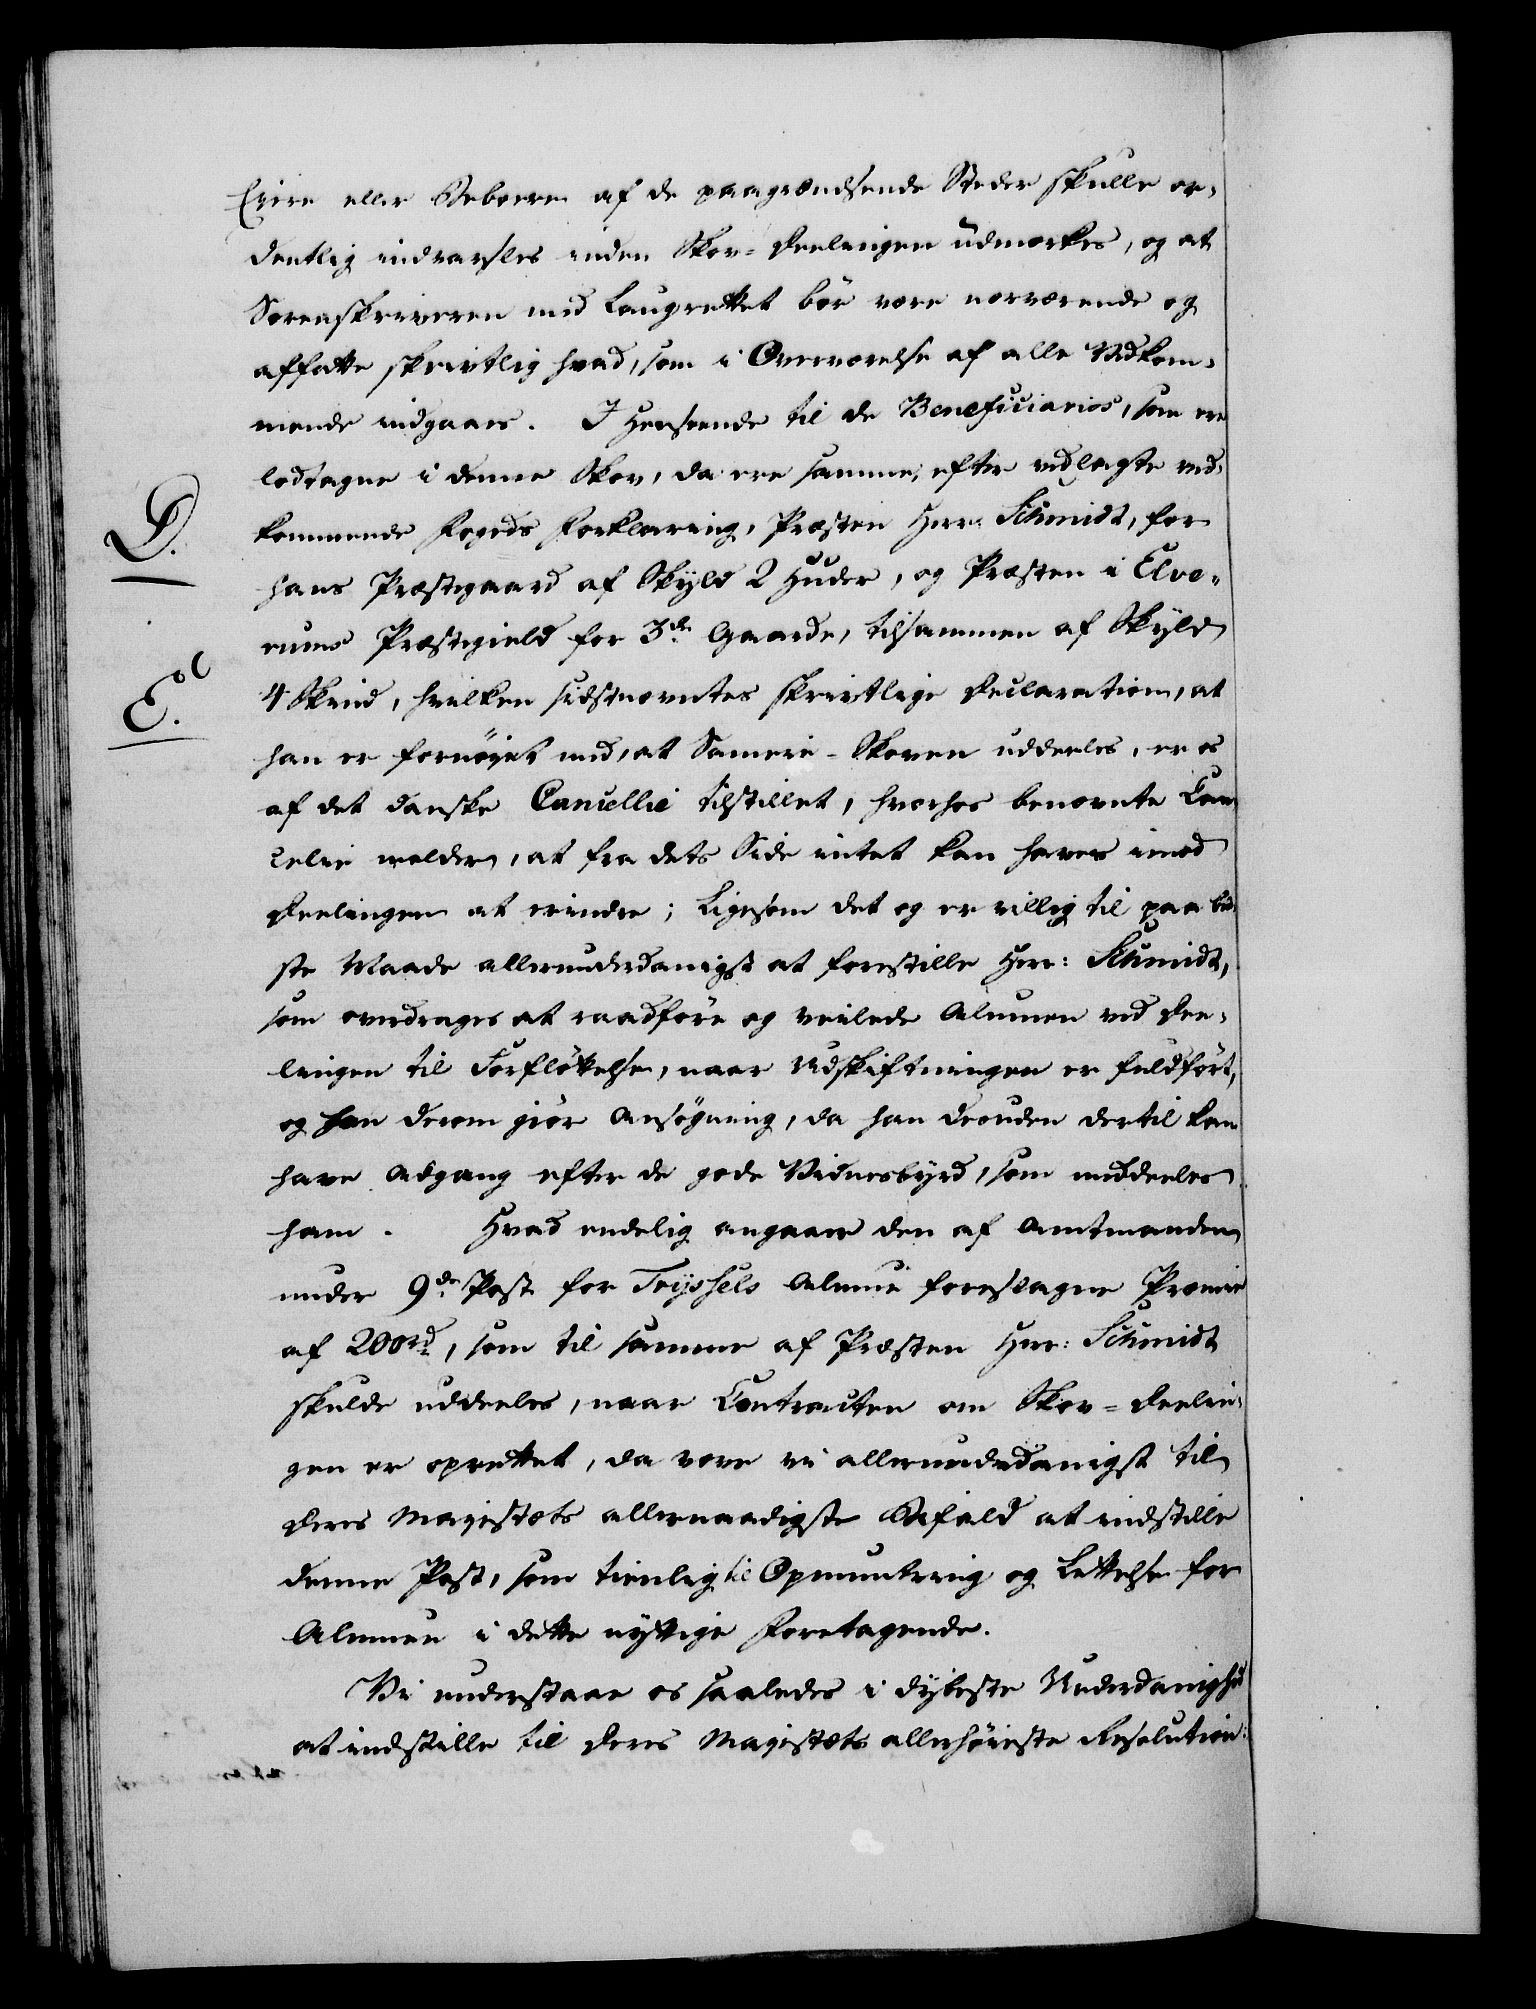 Eiere eller Beboere af de paagrændsende Steder skulle or-
dentlig indvarsles inden Skov-Deelingen udmærkes, og at
Sorenskriveren med Laugrettet bør være nærværende og
affatte skrivtlig hvad, som i Overværelse af alle Vedkom-
mende indgaaes. I Henseende til de Beneficiarios, som ere
lodtagne i denne Skov, da ere samme, efter vedlagte ved-
D. kommende Fogeds Forklaring, Præsten Herr Schmidt, for
hans Præstegaard af Skyld 2 Huder, og Præsten i Elve-
rums Præstegield for 3de Gaarde, tilsammen af Skyld
E. 4 Skind, hvilken sidstnævntes skrivtlige Declaration, at
han er fornøyet med, at Sameie-Skoven uddeeles, er os
af det danske Cancellie tilstillet, hvorhos benævnte Can
celie melder, at fra dets Side intet kan haves imod
Deelingen at erindre; Ligesom det og er villig til paa be-
ste Maade allerunderdanigst at forestille Herr: Schmidt,
som overdrages at raadføre og veilede Almuen ved Dee-
lingen til Forfløttelse, naar Udskiftningen er fuldført,
og han derom giør Ansøgning, da han desuden dertil kan
have Adgang efter de gode Vidnesbyrd, som meddeeles
ham. Hvad endelig angaaer den af Amtmanden
under 9de Post for Tryssels Almue foreslagne Præmie
af 200rd, som til samme af Præsten Herr: Schmidt
skulde uddeeles, naar Contracten om Skov-Deelin-
gen er oprettet, da vove vi allerunderdanigst til
Deres Majestæts allernaadigste Bifald at indstille
denne Post, som tienlig til Opmuntring og Lettelse for
Almuen i dette nyttige Foretagende.
Vi understaae os saaledes i dybeste Underdanighed
at indstille til Deres Majestæts allerhøieste Resolution: